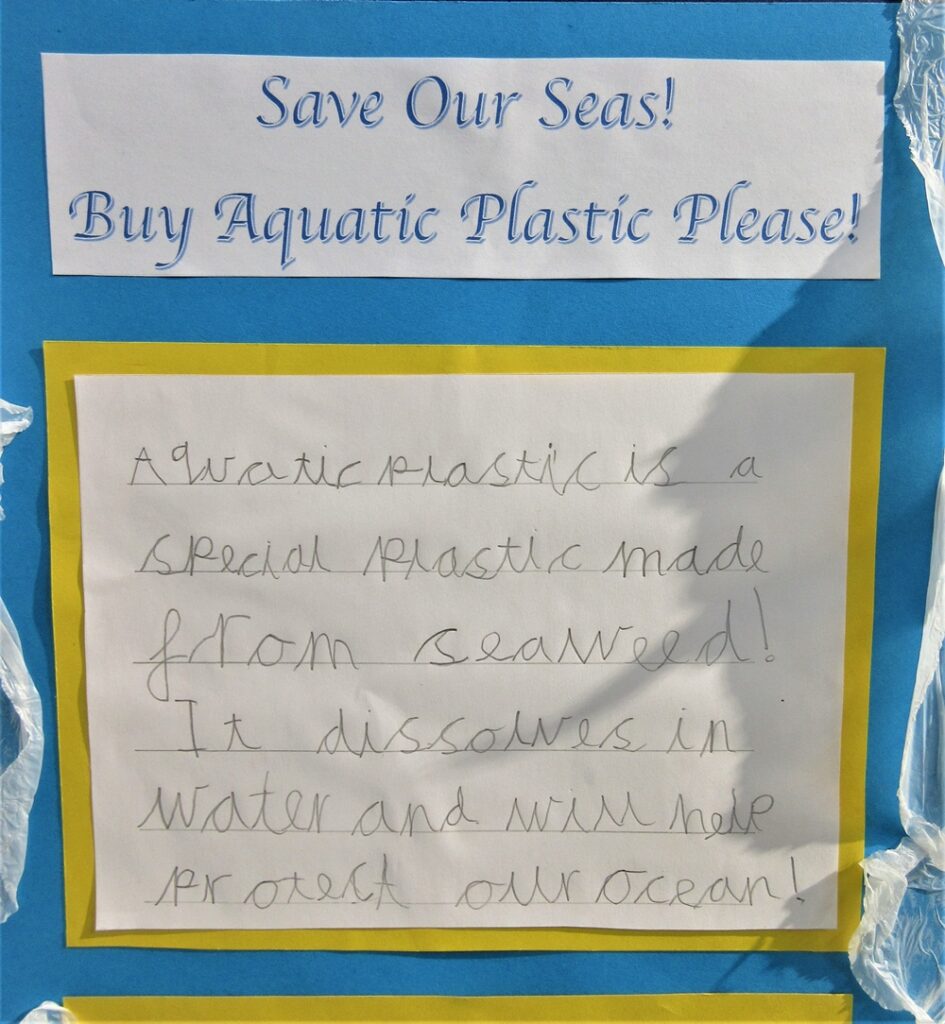 Save Our Seas!
Buy Aquatic Plastic Please!
Aquatic plastic is a
special plastic made
from seaweed!
It dissolves in
water and will help
protect our ocean!